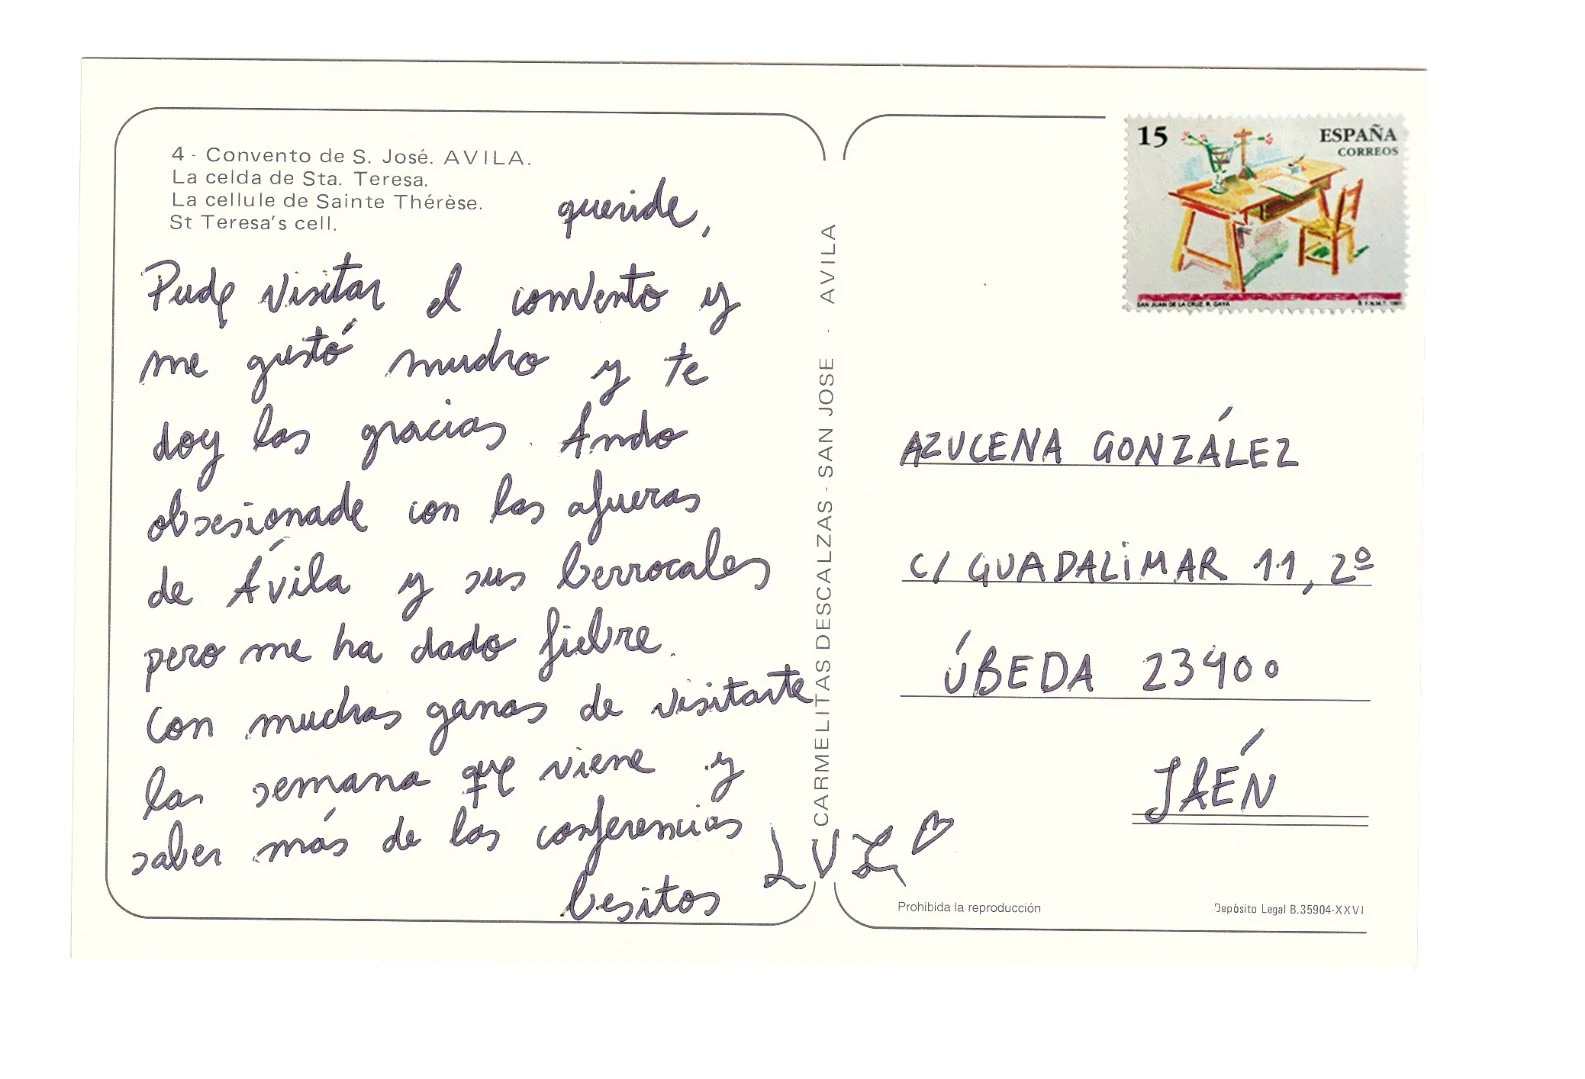 4 - Convento de S. José. AVILA.
La celda de Sta. Teresa.
La cellule de Sainte Thérèse.
St Teresa's cell.
queride,
Pude visitar el convento y
me gustó mucho y te
doy las gracias. Ando
obsesionade con las afueras
de Ávila y sus berrocales
pero me ha dado fiebre.
Con muchas ganas de visitarte
la semana que viene y
saber más de las conferencias
besitos
LUZ
CARMELITAS DESCALZAS - SAN JOSE - AVILA
15
ESPAÑA
CORREOS
SAN JUAN DE LA CRUZ. R. GAYA
F.N.M.T. 1991
AZUCENA GONZÁLEZ
C/ GUADALIMAR 11, 2º
ÚBEDA 23400
JAÉN
Prohibida la reproducción
Depósito Legal B.35904-XXVI